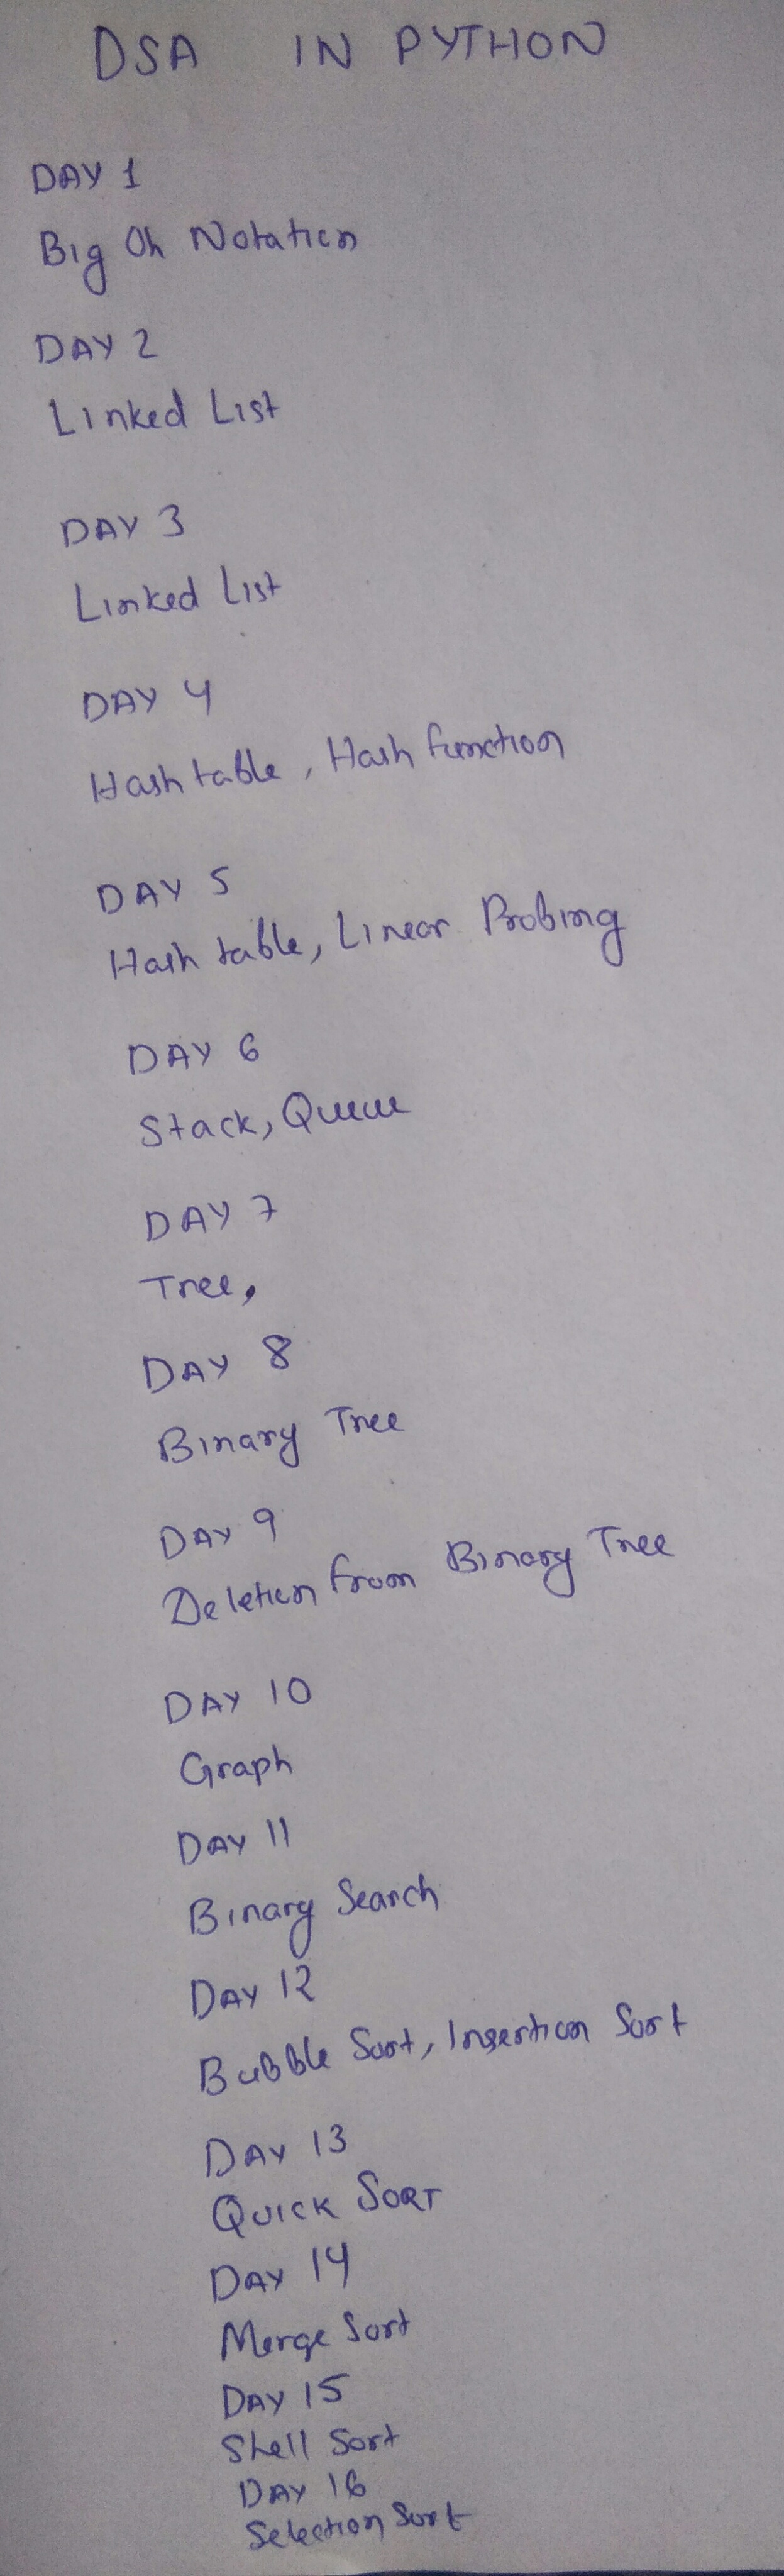 DSA IN PYTHON
DAY 1
Big Oh Notation
DAY 2
Linked List
DAY 3
Linked List
DAY 4
Hash table, Hash function
DAY 5
Hash table, Linear Probing
DAY 6
Stack, Queue
DAY 7
Tree,
DAY 8
Binary Tree
DAY 9
Deletion from Binary Tree
DAY 10
Graph
DAY 11
Binary Search
DAY 12
Bubble Sort, Insertion Sort
DAY 13
QUICK SORT
DAY 14
Merge Sort
DAY 15
Shell Sort
DAY 16
Selection Sort